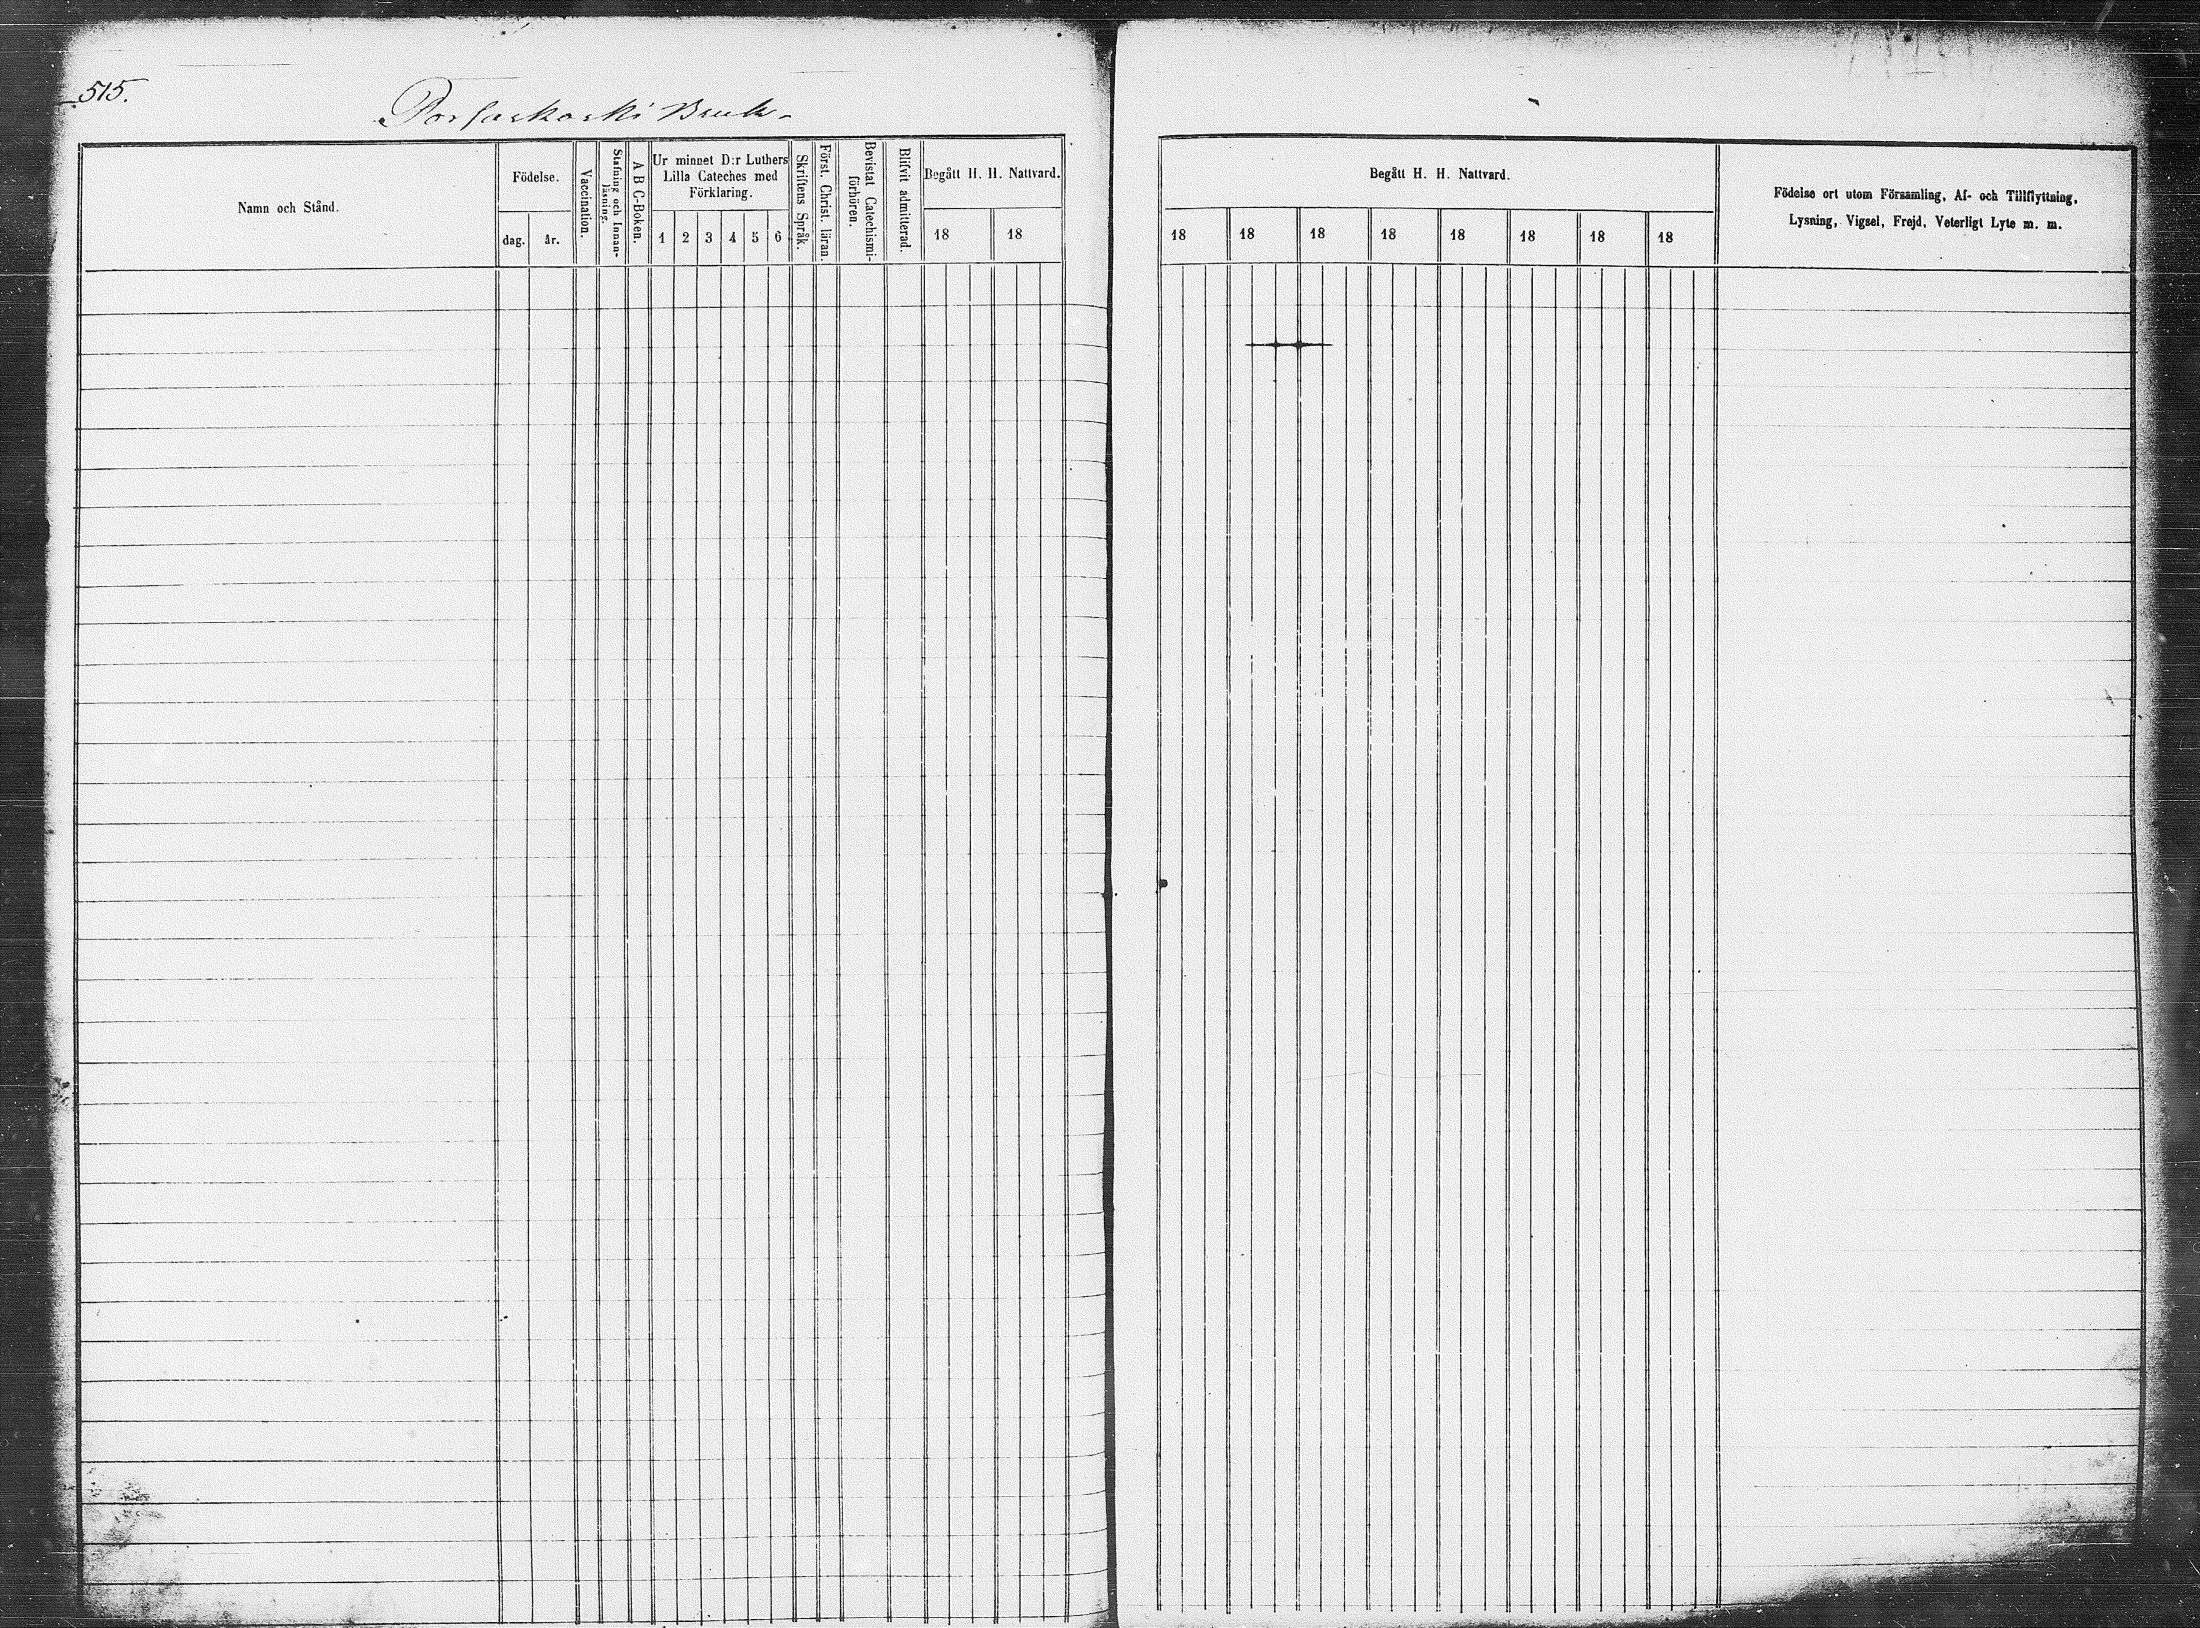 515.
Porsaskoski Bruk.
Namn och Stånd.
Födelse.
dag.
år.
Vaccination.
Stafning och Innanläsning.
A B C-Boken.
Ur minnet D:r Luthers
Lilla Cateches med
Förklaring.
1 2 3 4 5 6
Skriftens Språk.
Först. Christ. läran.
Bevistat Catechismi-
förhören.
Blifvit admitterad.
Begått H. H. Nattvard.
18 18
Begått H. H. Nattvard.
18 18 18 18 18 18 18 18
Födelse ort utom Församling, Af- och Tillflyttning,
Lysning, Vigsel, Frejd, Veterligt Lyte m. m.